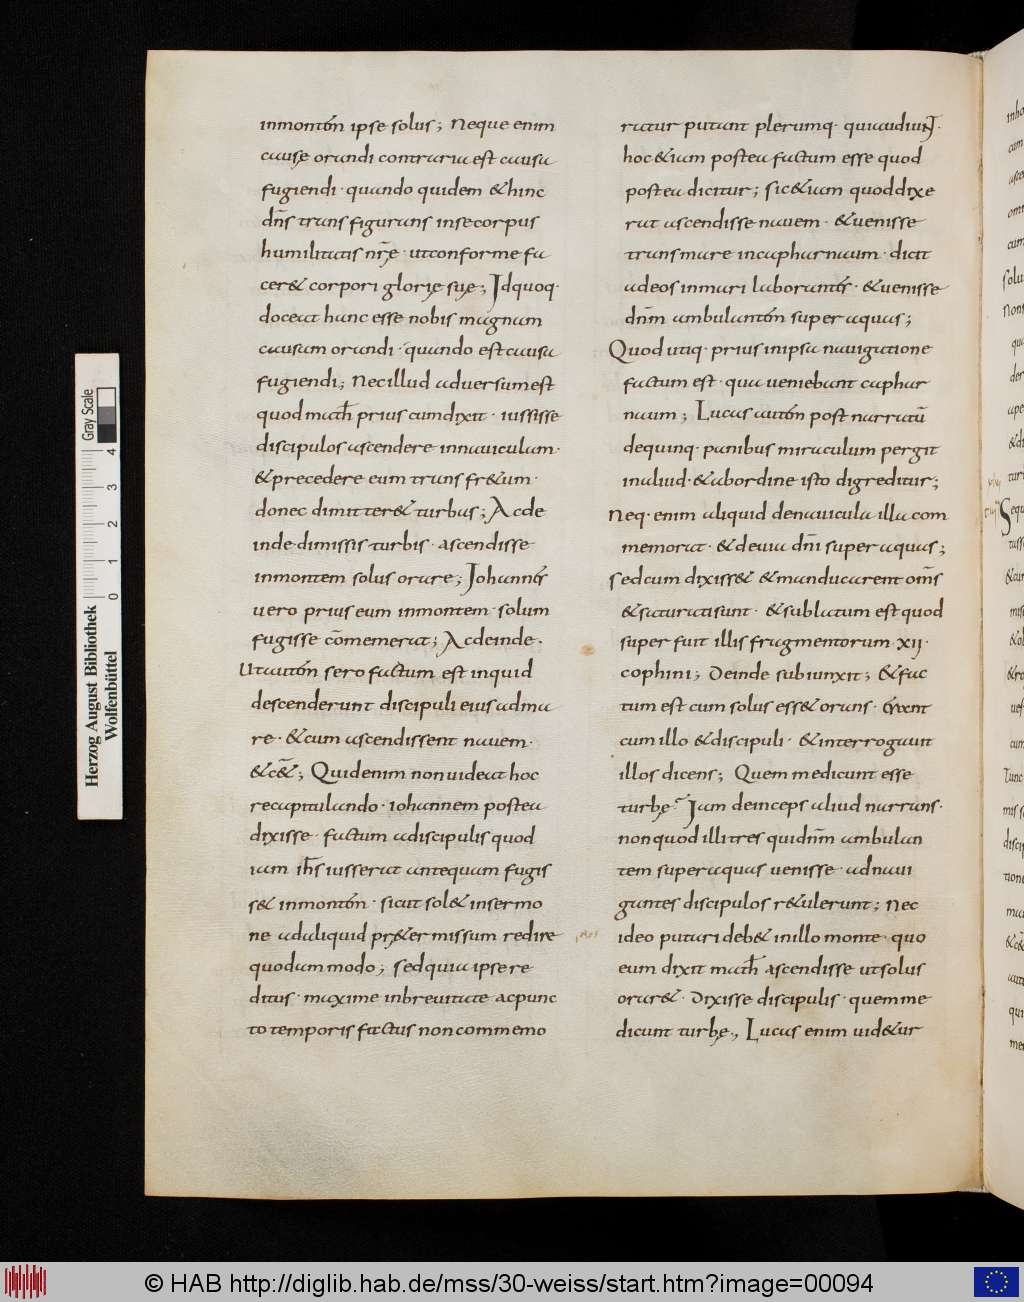 inmontē̄n ipse solus; Neque enim
causȩ orandi contraria est causa
fugiendi · quando quidem &hinc
dn̄s trans figurans insecorpus
humilitatis nr̄ȩ · utconforme fa
cer& corpori gloriȩ suȩ; Idquoq·
doceat hanc esse nobis magnam
causam orandi · quando est causa
fugiendi; Necillud aduersumest
quod math̄ prius cumdixit · iussisse
discipulos ascendere innauiculam·
&precedere eum trans fr&um·
donec dimitter& turbas; Acde
inde· dimissis turbis · ascendisse
inmontem solus orare; Johannes
uero prius eum inmontem · solum
fugisse cōmemerat; Acdeinde·
Utautem sero factum est inquid
descenderunt discipuli eius adma
re · &cum ascendissent nauem·
&c&̄; Quidenim nonuideat hoc
recapitulando · iohannem postea
dixisse · factum adiscipulis quod
iam ih̄s iusserat antequam fugis
s& inmontem · sicut sol& insermo
ne adaliquid pr&ȩrmissum redire
quodam modo; sedquia ipsere
ditus · maxime inbreuitate acpunc
to temporis factus non commemo
ratur putant plerumq· quiaudiunt·
hoc &iam postea factum esse quod
postea dicitur; sic&iam quoddixe
rat ascendisse nauem · &uenisse
transmare incapharnaum · dicit
adeos inmari laborantes · &uenisse
dnm̄ ambulantem super aquas;
Quod utiq· prius inipsa nauigatione
factum est · qua ueniebant caphar
naum; Lucas autem post narratū
dequinq· panibus miraculum pergit
inaliud · &abordine isto digreditur;
Neq· enim aliquid denauicula illa com
memorat · &deuia dn̄i super aquas;
sedcum dixiss& &manducarent om̄s
&saturatisunt · &sublatum est quod
super fuit illis fragmentorum · xij·
cophini; Deinde subiunxit; &fac
tum est cum solus ess& orans · erant
cum illo &discipuli · &interrogauit
illos dicens; Quem me dicunt esse
turbȩ? Jam deinceps aliud narrans·
non quod illi tres quidnm̄ ambulan
tem super aquas uenisse · ad naui
gantes discipulos r&ulerunt; Nec
ideo putari deb& inillo monte · quo
eum dixit math̄ ascendisse utsolus
orar& · Dixisse discipulis · quemme
dicunt turbȩ·, Lucas enim uid&ur
Gray Scale
0 1 2 3 4
Herzog August Bibliothek
Wolfenbüttel
© HAB http://diglib.hab.de/mss/30-weiss/start.htm?image=00094